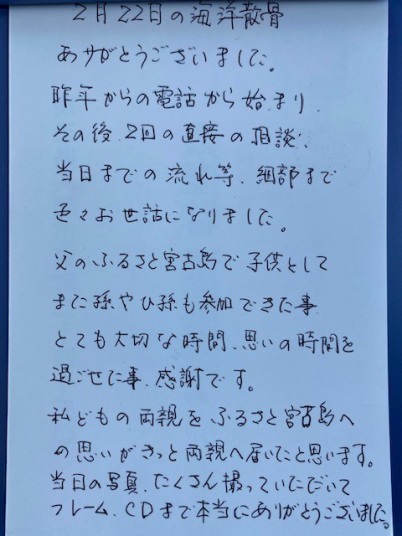 2月22日の海洋散骨
ありがとうございました。
昨年からの電話から始まり
その後、2回の直接の相談、
当日までの流れ等、細部まで
色々お世話になりました。
父のふるさと宮古島で子供として
また孫やひ孫も参加できた事
とても大切な時間、思いの時間を
過ごせた事、感謝です。
私どもの両親をふるさと宮古島へ
の思いがきっと両親へ届いたと思います。
当日の写真、たくさん撮っていただいて
フレーム、CDまで本当にありがとうございました。